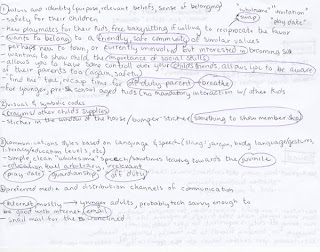 ① values and identity (purpose, relevant beliefs, sense of belonging)
"wholesome" "invitation"
swap "play date"
- safety for their children
- new playmates for their kids, free babysitting if willing to reciprocate the favor
- wants to belong to a friendly, safe community of similar values
- perhaps new to town, or currently uninvolved but interested in becoming so
- wanting to show child the importance of social skills
- allows you to have some control over your child's friends, allows you to be aware
of their parents too (again, safety)
- find the "fun," recoup time of "off duty parent" breathe
- for younger, pre-school aged kids (no mandatory interaction w/ other kids)
② visual & symbolic codes
- crayons/other child's supplies
- sticker in the window of the house/bumper sticker: something to show membership
③ communications styles based on language (speech/slang/jargon, body language/gestures,
literacy/education levels, etc)
- simple clean "wholesome" speech/sometimes leaning towards the juvenile
- education level arbitrary, irrelevant
play date guardianship off duty
④ preferred media and distribution channels of communication
- internet, mostly younger adults, probably tech savvy enough to
be good with internet/email
- snail mail for the